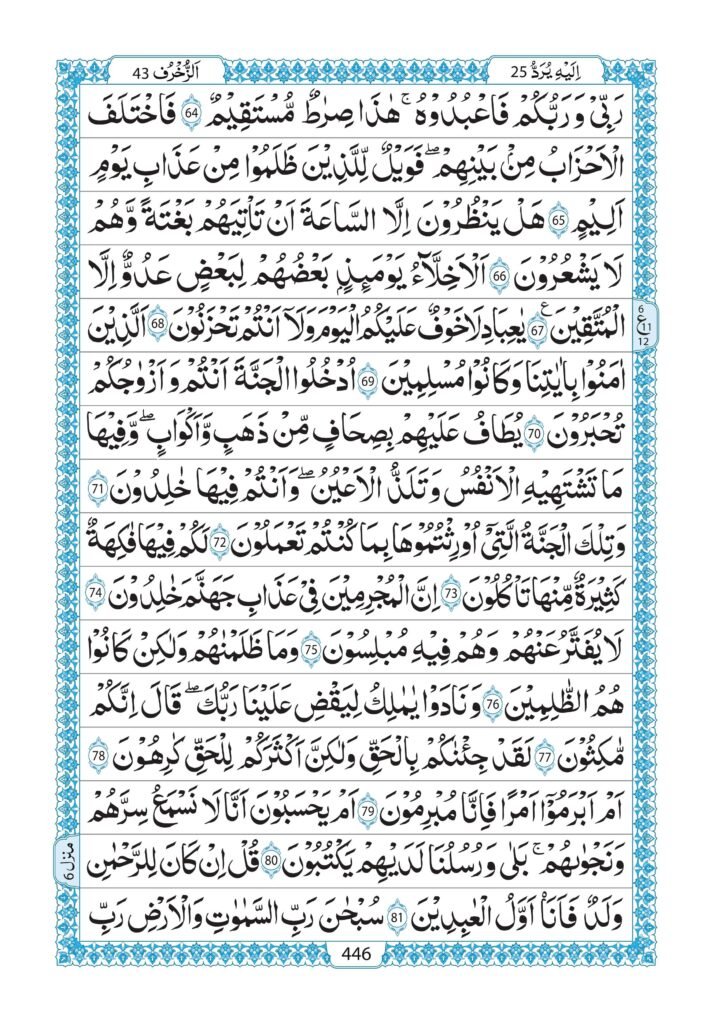 اِلَيْهِ يُرَدُّ 25
اَلزُّخْرُف 43
رَبِّىْ وَرَبُّكُمْ فَاعْبُدُوْهُ ۚ هٰذَا صِرَاطٌ مُّسْتَقِيْمٌ 64 فَاخْتَلَفَ
الْاَحْزَابُ مِنْۢ بَيْنِهِمْ ۖ فَوَيْلٌ لِّلَّذِيْنَ ظَلَمُوْا مِنْ عَذَابِ يَوْمٍ
اَلِيْمٍ 65 هَلْ يَنْظُرُوْنَ اِلَّا السَّاعَةَ اَنْ تَاْتِيَهُمْ بَغْتَةً وَّهُمْ
لَا يَشْعُرُوْنَ 66 اَلْاَخِلَّآءُ يَوْمَئِذٍۢ بَعْضُهُمْ لِبَعْضٍ عَدُوٌّ اِلَّا
الْمُتَّقِيْنَ 67 ع يٰعِبَادِ لَا خَوْفٌ عَلَيْكُمُ الْيَوْمَ وَلَاۤ اَنْتُمْ تَحْزَنُوْنَ 68 اَلَّذِيْنَ
6
ع 11
12
اٰمَنُوْا بِاٰيٰتِنَا وَكَانُوْا مُسْلِمِيْنَ 69 اُدْخُلُوا الْجَنَّةَ اَنْتُمْ وَاَزْوَاجُكُمْ
تُحْبَرُوْنَ 70 يُطَافُ عَلَيْهِمْ بِصِحَافٍ مِّنْ ذَهَبٍ وَّاَكْوَابٍ ۖ وَّفِيْهَا
مَا تَشْتَهِيْهِ الْاَنْفُسُ وَتَلَذُّ الْاَعْيُنُ ۖ وَاَنْتُمْ فِيْهَا خٰلِدُوْنَ 71
وَتِلْكَ الْجَنَّةُ الَّتِىْۤ اُوْرِثْتُمُوْهَا بِمَا كُنْتُمْ تَعْمَلُوْنَ 72 لَكُمْ فِيْهَا فٰكِهَةٌ
كَثِيْرَةٌ مِّنْهَا تَاْكُلُوْنَ 73 اِنَّ الْمُجْرِمِيْنَ فِىْ عَذَابِ جَهَنَّمَ خٰلِدُوْنَ 74
لَا يُفَتَّرُ عَنْهُمْ وَهُمْ فِيْهِ مُبْلِسُوْنَ 75 وَمَا ظَلَمْنٰهُمْ وَلٰكِنْ كَانُوْا
هُمُ الظّٰلِمِيْنَ 76 وَنَادَوْا يٰمٰلِكُ لِيَقْضِ عَلَيْنَا رَبُّكَ ۖ قَالَ اِنَّكُمْ
مّٰكِثُوْنَ 77 لَقَدْ جِئْنٰكُمْ بِالْحَقِّ وَلٰكِنَّ اَكْثَرَكُمْ لِلْحَقِّ كٰرِهُوْنَ 78
اَمْ اَبْرَمُوْۤا اَمْرًا فَاِنَّا مُبْرِمُوْنَ 79 اَمْ يَحْسَبُوْنَ اَنَّا لَا نَسْمَعُ سِرَّهُمْ
وَنَجْوٰىهُمْ ۚ بَلٰى وَرُسُلُنَا لَدَيْهِمْ يَكْتُبُوْنَ 80 قُلْ اِنْ كَانَ لِلرَّحْمٰنِ
منزل 6
وَلَدٌ فَاَنَا۠ اَوَّلُ الْعٰبِدِيْنَ 81 سُبْحٰنَ رَبِّ السَّمٰوٰتِ وَالْاَرْضِ رَبِّ
446